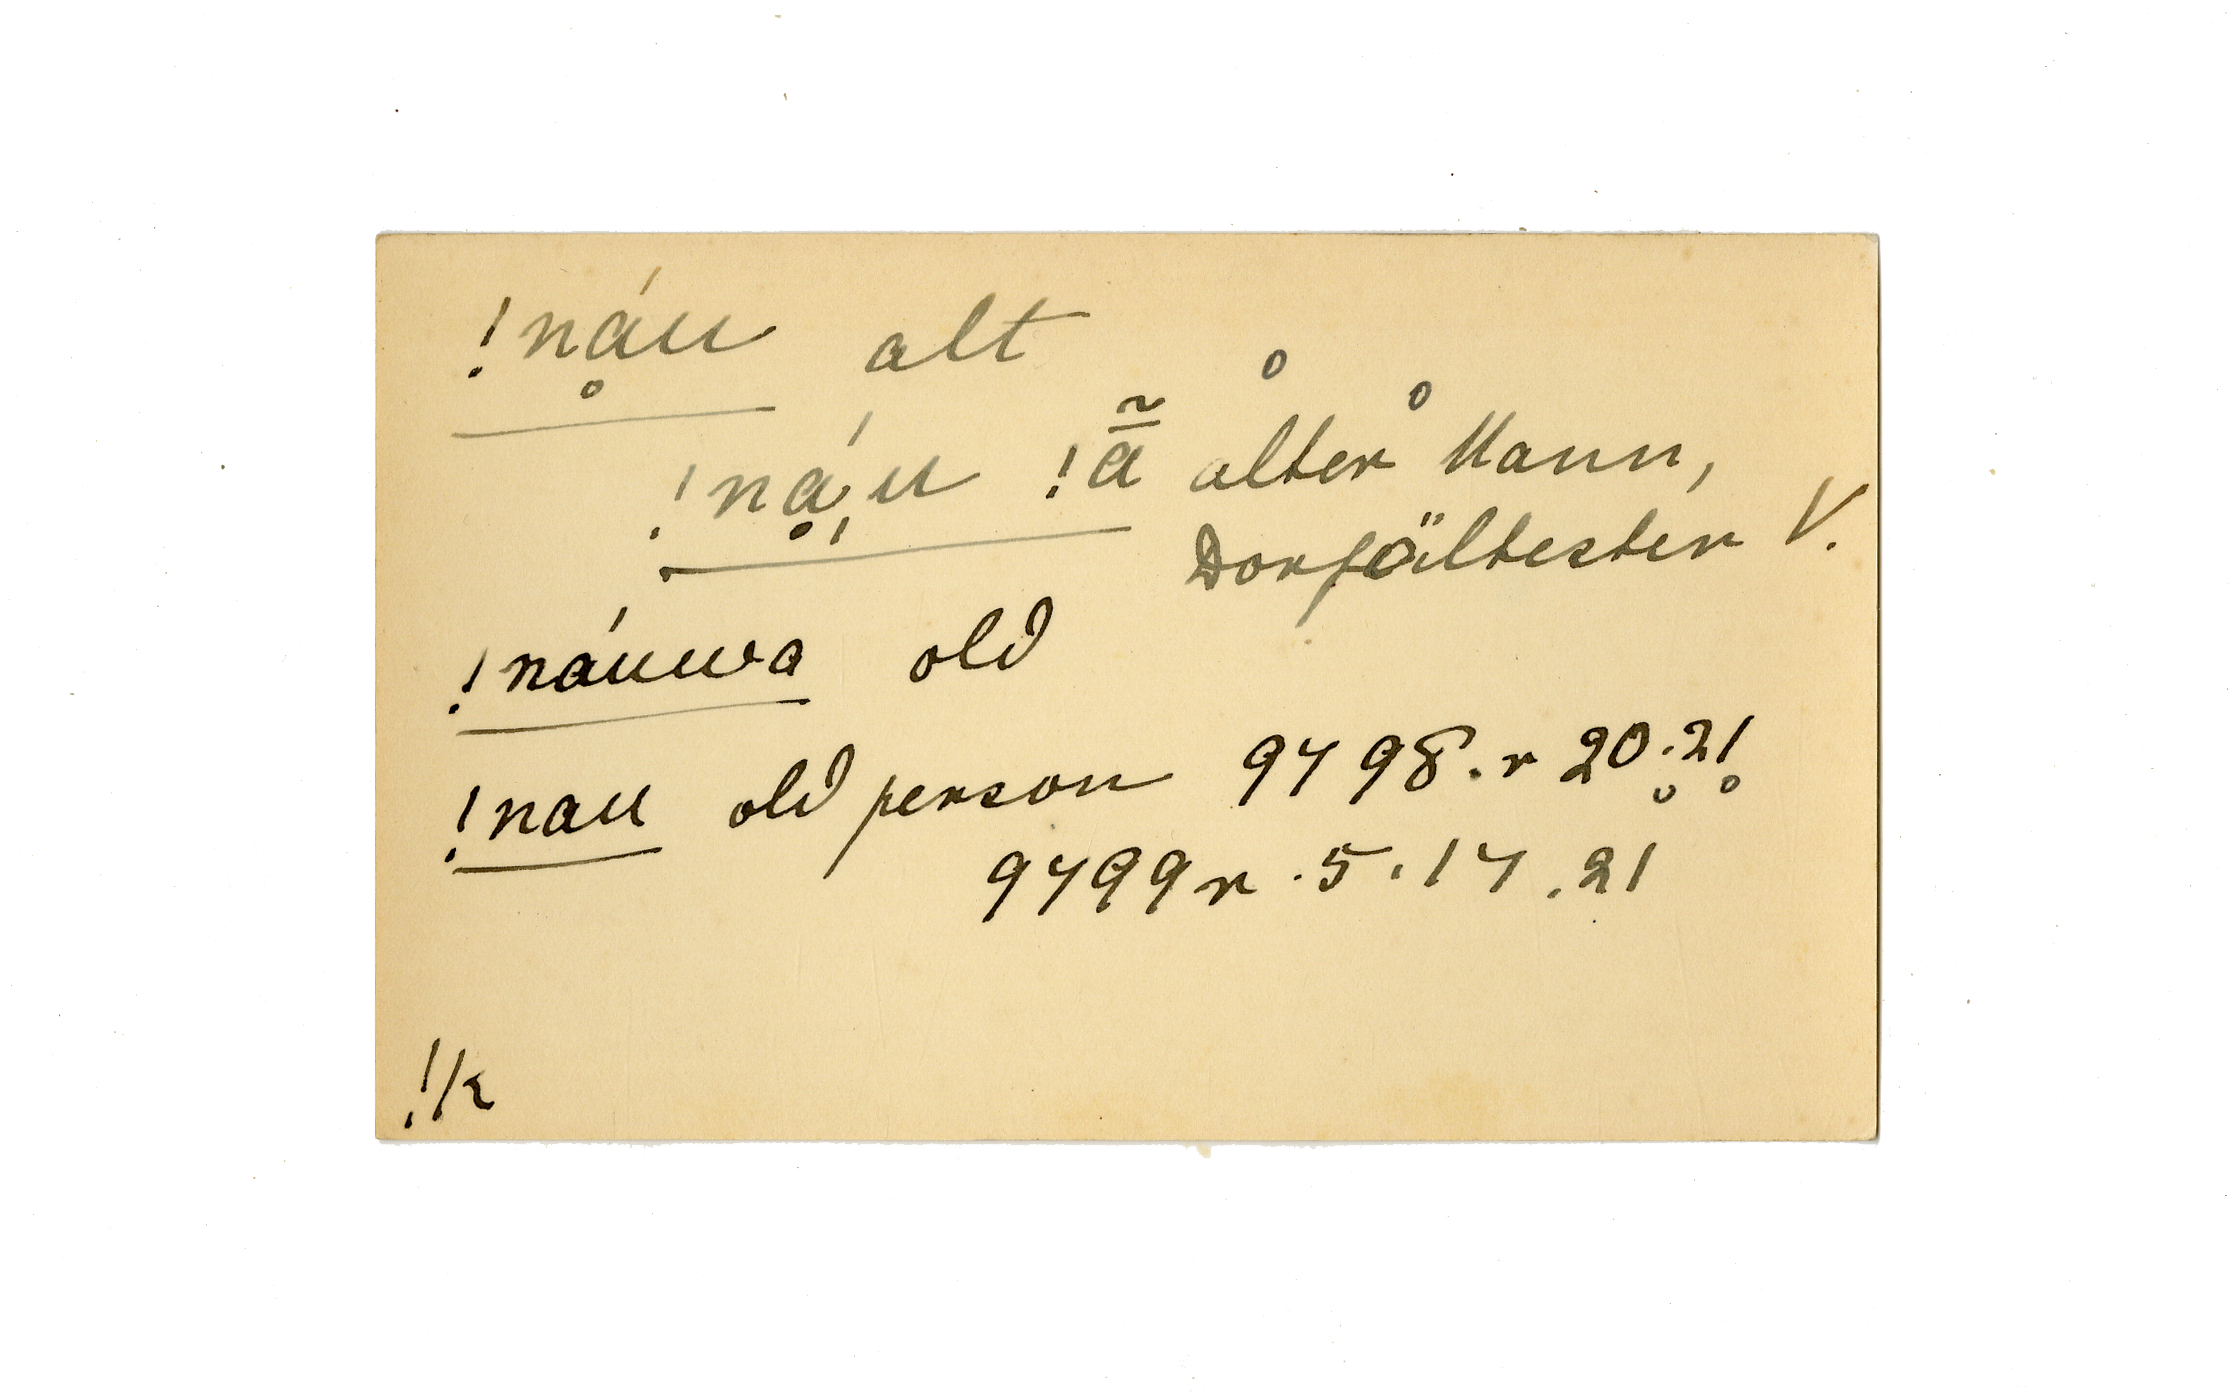 !nḁ́u alt
!nḁ̗́u !ā̃ alter Mann,
Dorfältester V.
!náuwa old
!nau old person 9798.r 20.21
9799r.5.17.21
!k